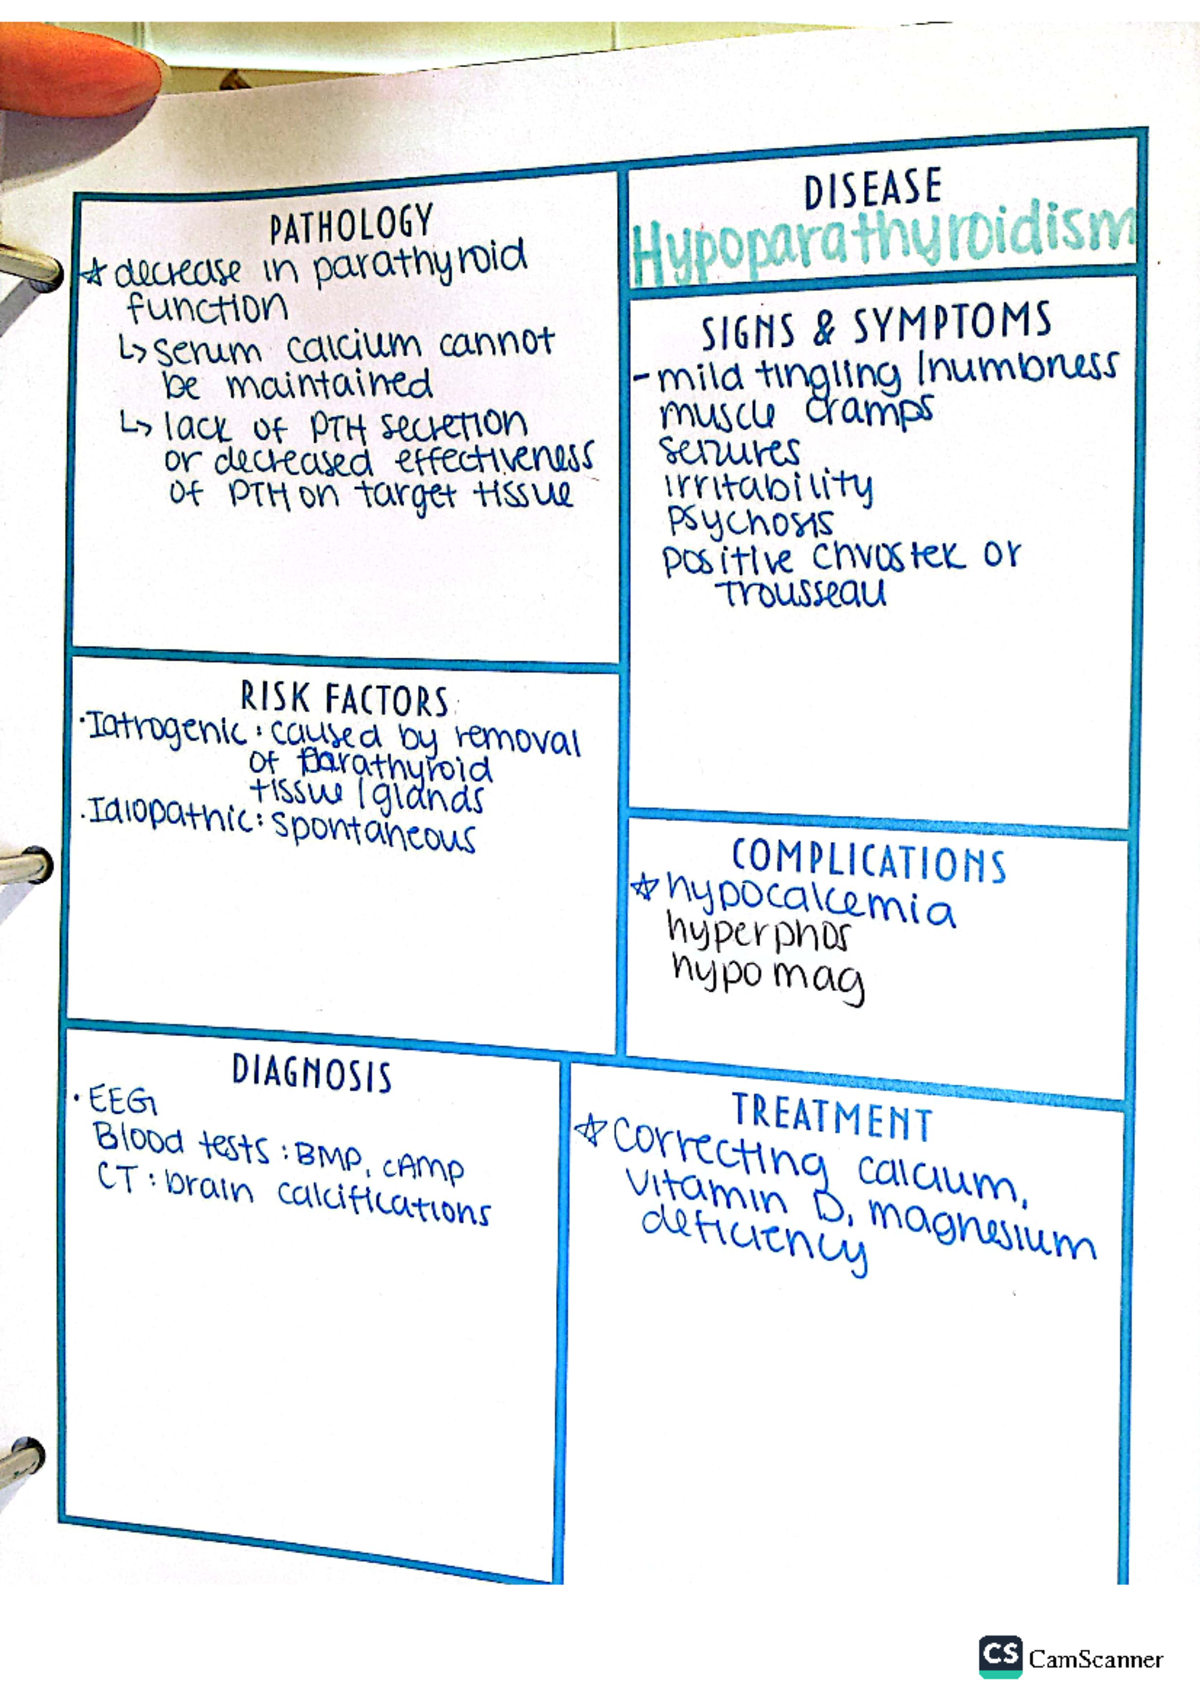 PATHOLOGY
☆ decrease in parathyroid
function
↳ serum calcium cannot
be maintained
↳ lack of PTH secretion
or decreased effectiveness
of PTH on target tissue
DISEASE
Hypoparathyroidism
SIGNS & SYMPTOMS
- mild tingling/numbness
muscle cramps
seizures
irritability
psychosis
positive chvostek or
trousseau
RISK FACTORS
· Iatrogenic: caused by removal
of parathyroid
tissue/glands
· Idiopathic: spontaneous
COMPLICATIONS
☆ hypocalcemia
hyperphos
hypomag
DIAGNOSIS
· EEG
Blood tests: BMP, cAMP
CT: brain calcifications
TREATMENT
☆ correcting calcium,
vitamin D, magnesium
deficiency
CS CamScanner